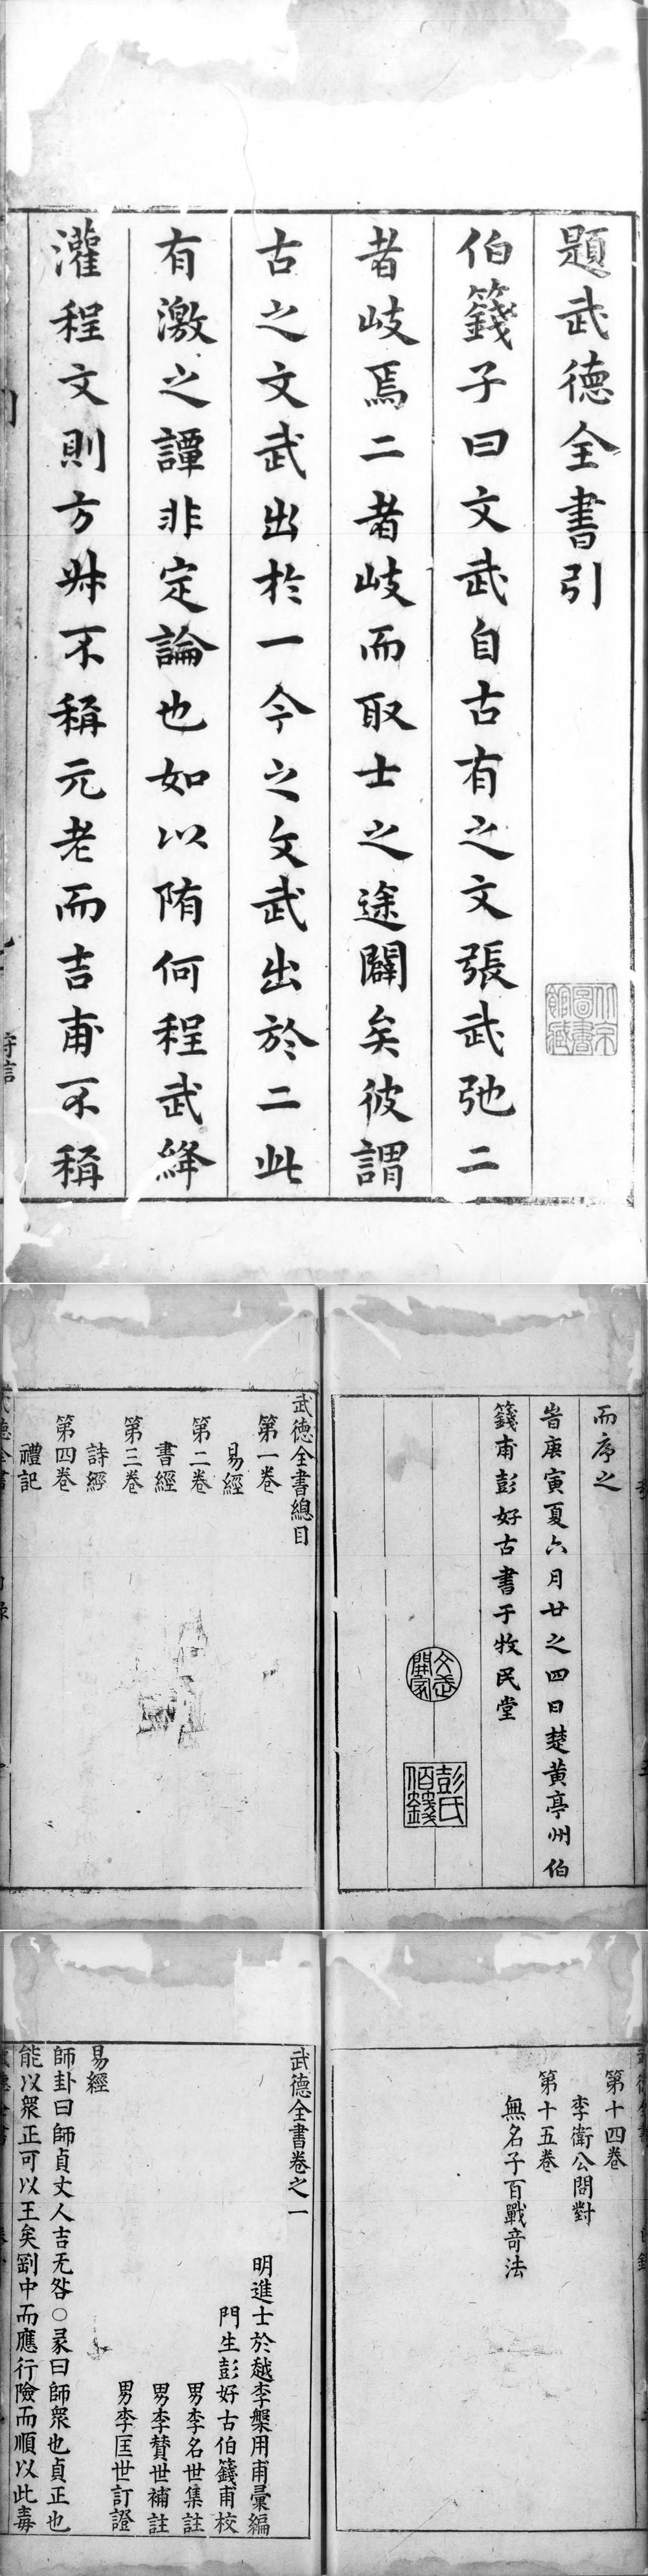 題武德全書引
伯籛子曰文武自古有之文張武弛二
者岐焉二者岐而取士之途闢矣彼謂
古之文武出於一今之文武出於二此
有激之譚非定論也如以隋何程武絳
灌程文則方叔不稱元老而吉甫不稱
而序之
旹庚寅夏六月廿之四日楚黃亭州伯
籛甫彭好古書于牧民堂
彭氏伯籛
武德全書總目
第一卷
易經
第二卷
書經
第三卷
詩經
第四卷
禮記
第十四卷
李衛公問對
第十五卷
無名子百戰奇法
武德全書卷之一
明進士於越李槃用甫彙編
門生彭好古伯籛甫校
男李名世集註
男李贊世補註
男李匡世訂證
易經
師卦曰師貞丈人吉无咎○彖曰師衆也貞正也
能以衆正可以王矣剛中而應行險而順以此毒